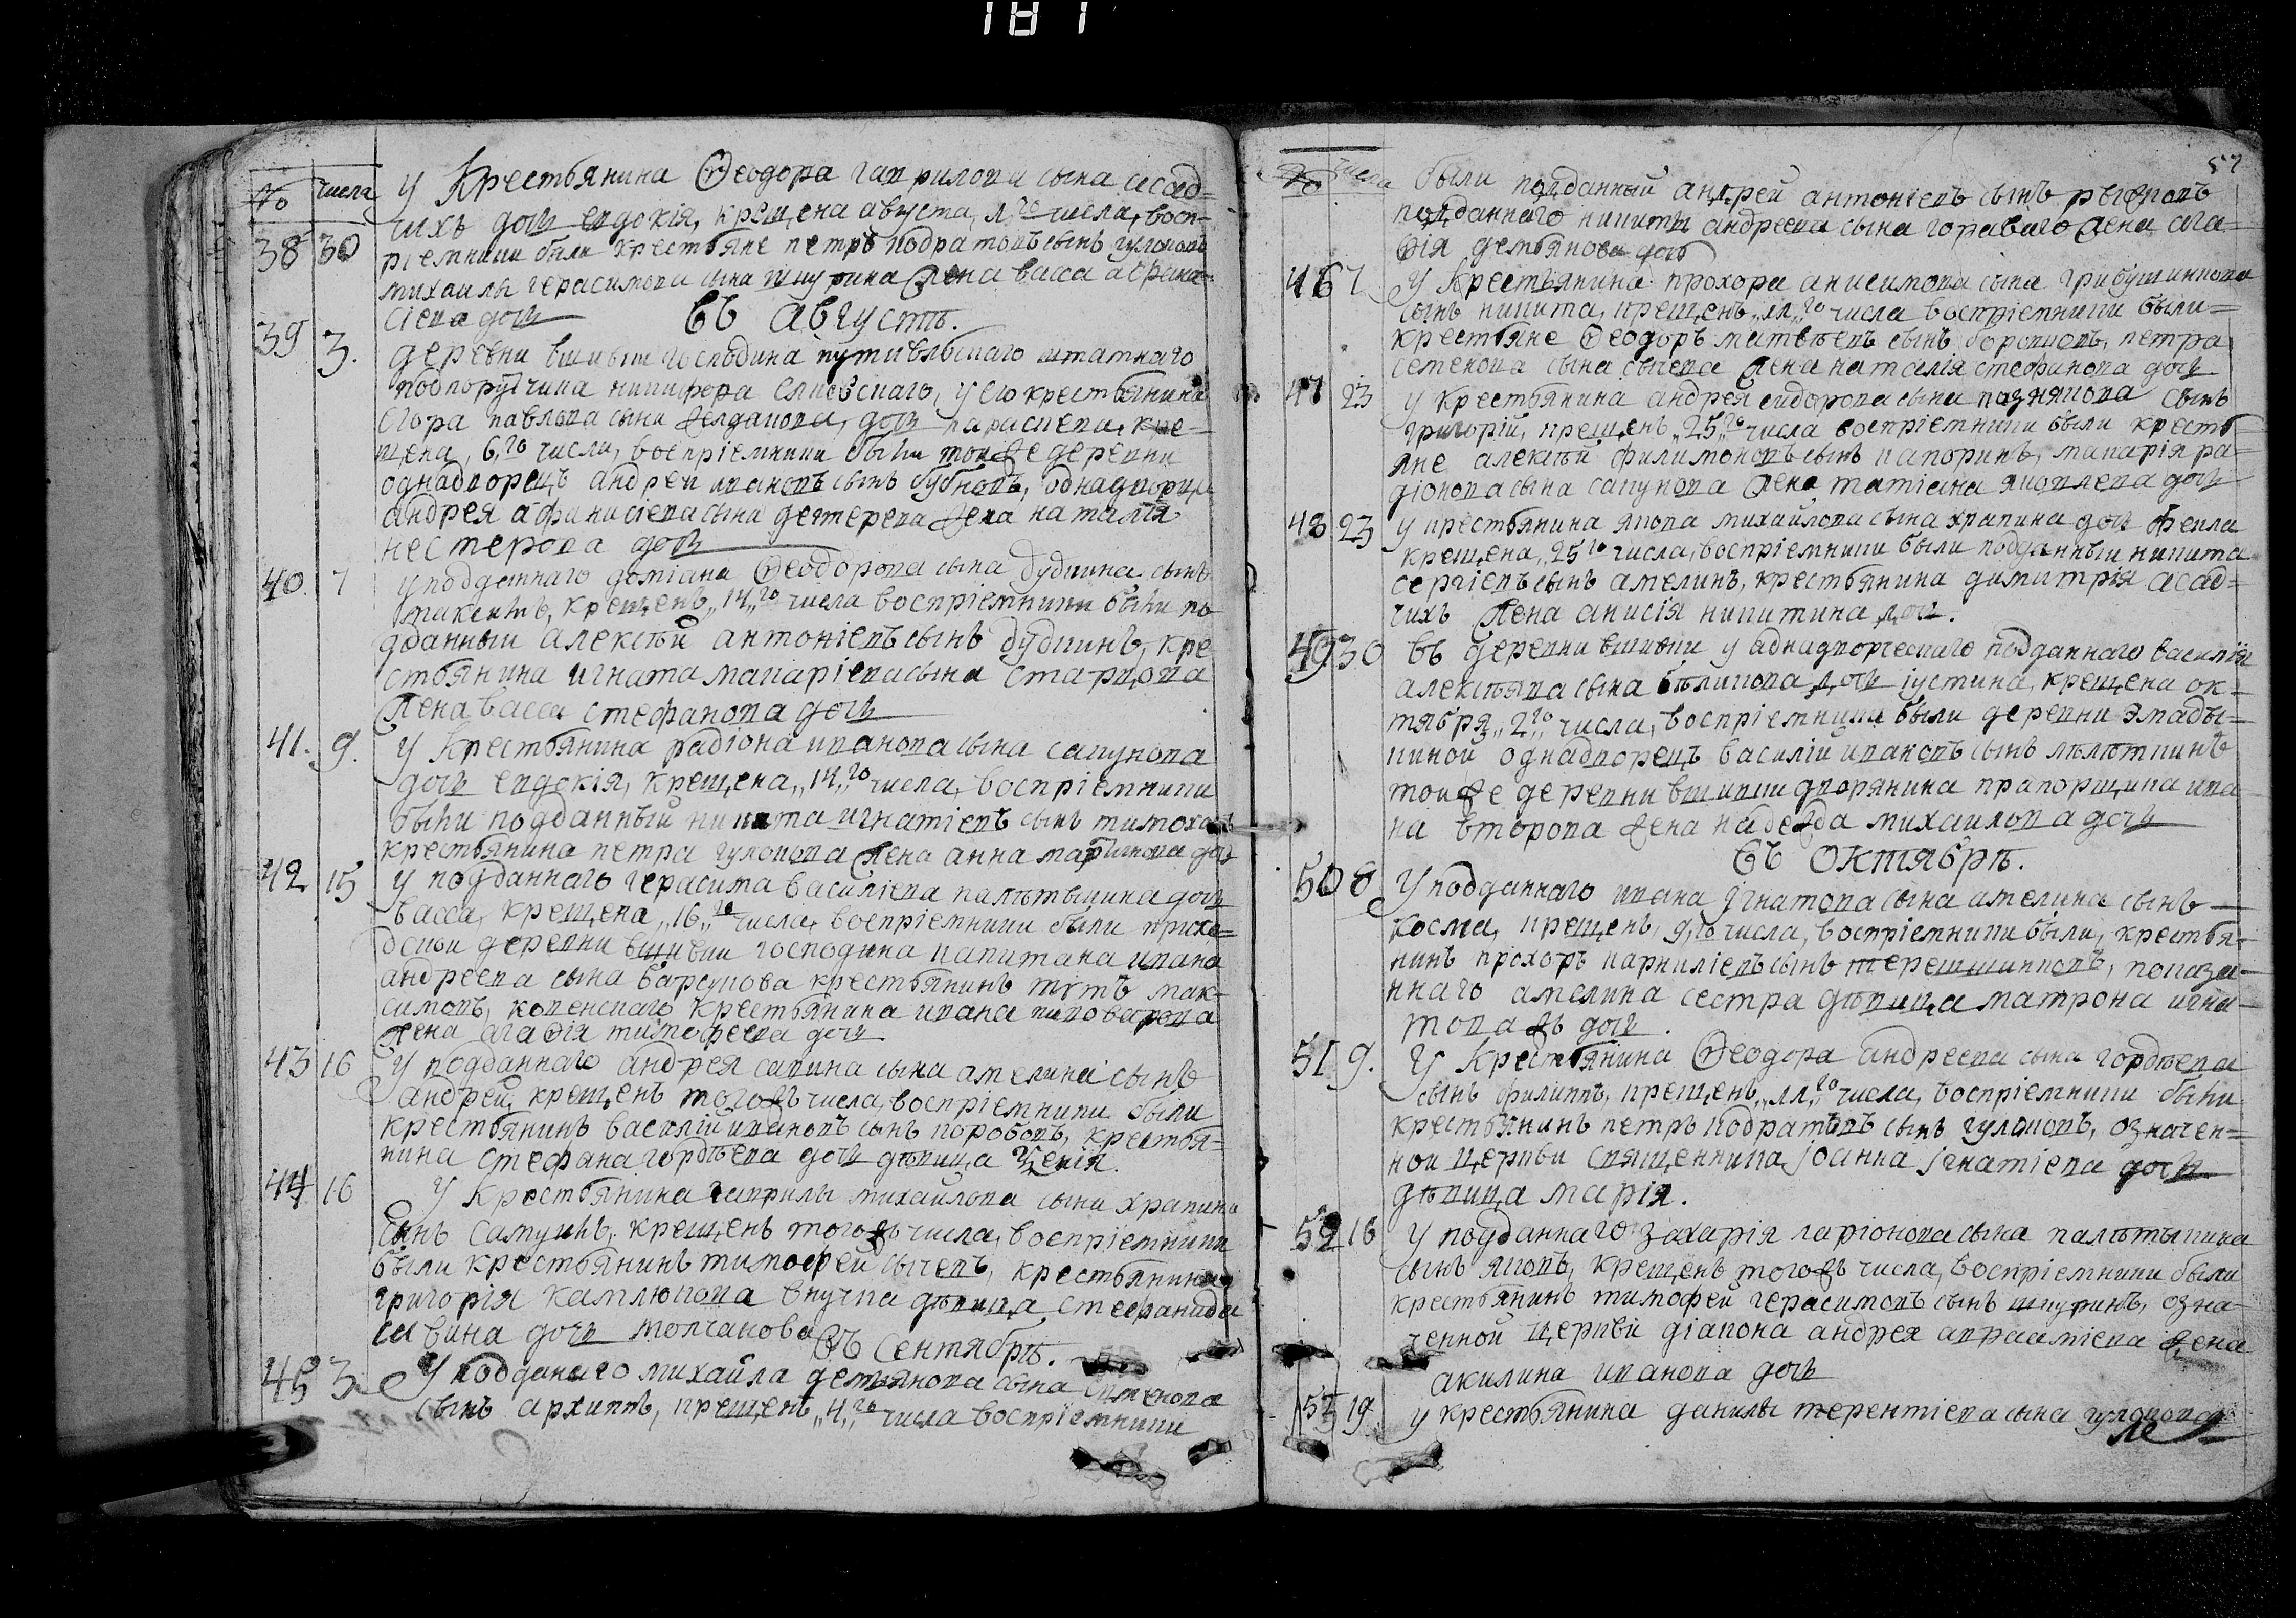 181
№ числа
У Крестьянина Ѳеодора гаврилова сына асад=
38 30 чихъ дочь евдокія, крещена августа, 1,го числа, восп-
ріемники были крестьяне петръ кодратовъ сынъ гулоковъ
михаилы герасимова сына шкурина жена васса афана=
сіева дочь
Въ Августѣ.
39 3. деревни вшивки господина путивльскаго штатнаго
подпорутчика никифора елисѣзскаго, у его крестьянина
егора павлова сына желданова, дочь параскева, кре-
щена, 6,го числа, воспріемники были тойже деревни
однадворецъ андрей ивановъ сынъ бубновъ, однадворца
андрея афанасіева сына дегтерева жена наталія
нестерова дочь
40. 7 у подданнаго деміана Ѳеодорова сына дудкина сынъ
максимъ, крещенъ „14„го числа воспріемники были по
дданный алексѣй антоніевъ сынъ дудкинъ, кре
стьянина игната макаріева сына старцова
жена васса стефанова дочь
41. 9. У Крестьянина радіона иванова сына сапунова
дочь евдокія, крещена „14„го числа, воспріемники
были подданный никита игнатіевъ сынъ тимохинъ
крестьянина петра гулокова жена анна маркова дочь
42 15 у подданнаго герасима василіева палѣтыкина дочь
васса, крещена „16„го числа, воспріемники были прихо=
дской деревни вшивки господина капитана ивана
андреева сына барсукова крестьянинъ титъ мак-
симовъ, коренскаго крестьянина ивана пивоварова
жена агаѳія тимофеева дочь
43 16 У подданнаго андрея савина сына амелина сынъ
андрей, крещенъ тогожъ числа, воспріемники были
крестьянинъ василій ивановъ сынъ коробовъ, крестья=
нина стефана гордѣева дочь дѣвица Ксенія.
44 16 У Крестьянина гаврилы михайлова сына храпина
сынъ самуилъ, крещенъ тогожъ числа, воспріемники
были крестьянинъ тимофей сычевъ, крестьянина
григорія камлюкова внучка дѣвица стефанида
савина дочь толчакова
Въ Сентябрѣ.
45 3 У подданаго михайла демьянова сына
сынъ архиппъ, крещенъ „4„го числа воспріемники
57
№ числа
были подданный андрей антоніевъ сынъ рыжковъ
подданнаго никиты андреева сына гороваго жена ага=
ѳія демьянова дочь
46 7 У Крестьянина прохора анисимова сына грибушинкова
сынъ никита, крещенъ „11„го числа воспріемники были=
крестьяне Ѳеодоръ матвѣевъ сынъ борвковъ, петра
семенова сына сычева жена наталія стефанова дочь
47 23 у крестьянина андрея сидорова сына познякова сынъ
григорій, крещенъ „25„го числа воспріемники были кресть
яне алексѣй филимоновъ сынъ капоринъ, макарія ра=
діонова сына сапунова жена татіана яковлева дочь
48 23 у крестьянина якова михайлова сына храпина дочь ѳекла
крещена „25„го числа, воспріемники были подданный никита
сергіевъ сынъ амелинъ, крестьянина димитрія асад=
чихъ жена анисія никитина дочь.
49 30 въ деревни вшивки у аднадворческаго подданнаго василія
алексѣева сына бѣликова дочь іустина, крещена ок-
тября „2„го числа, воспріемники были деревни эмады=
киной однадворецъ василій ивановъ сынъ
тойже деревни вшивки дворянина прапорщика ива
на второва жена надежда михаилова дочь
Въ Октябрѣ.
50 8 У подданнаго ивана Ігнатова сына амелина сынъ —
косма, крещенъ, 9,го числа, воспріемники были, крестья-
нинъ прохоръ карниліевъ сынъ терешшинковъ, показа-
ннаго амелина сестра дѣвица матрона игна-
товажъ дочь.
51 9. У Крестьянина Ѳеодора андреева сына гордѣева
сынъ филиппъ, крещенъ „11„го числа, воспріемники были
крестьянинъ петръ кодратовъ сынъ гулоковъ, означен=
ной церкви священника Іоанна Ігнатіева дочь
дѣвица марія.
52 16 у подданнаго захарія ларіонова сына палѣтыкина
сынъ яковъ, крещенъ тогожъ числа, воспріемники были
крестьянинъ тимофей герасимовъ сынъ шкуринъ, озна-
ченной церкви діакона андрея аврааміева жена
акилина иванова дочь
53 19 у крестьянина данилы терентіева сына гулокова